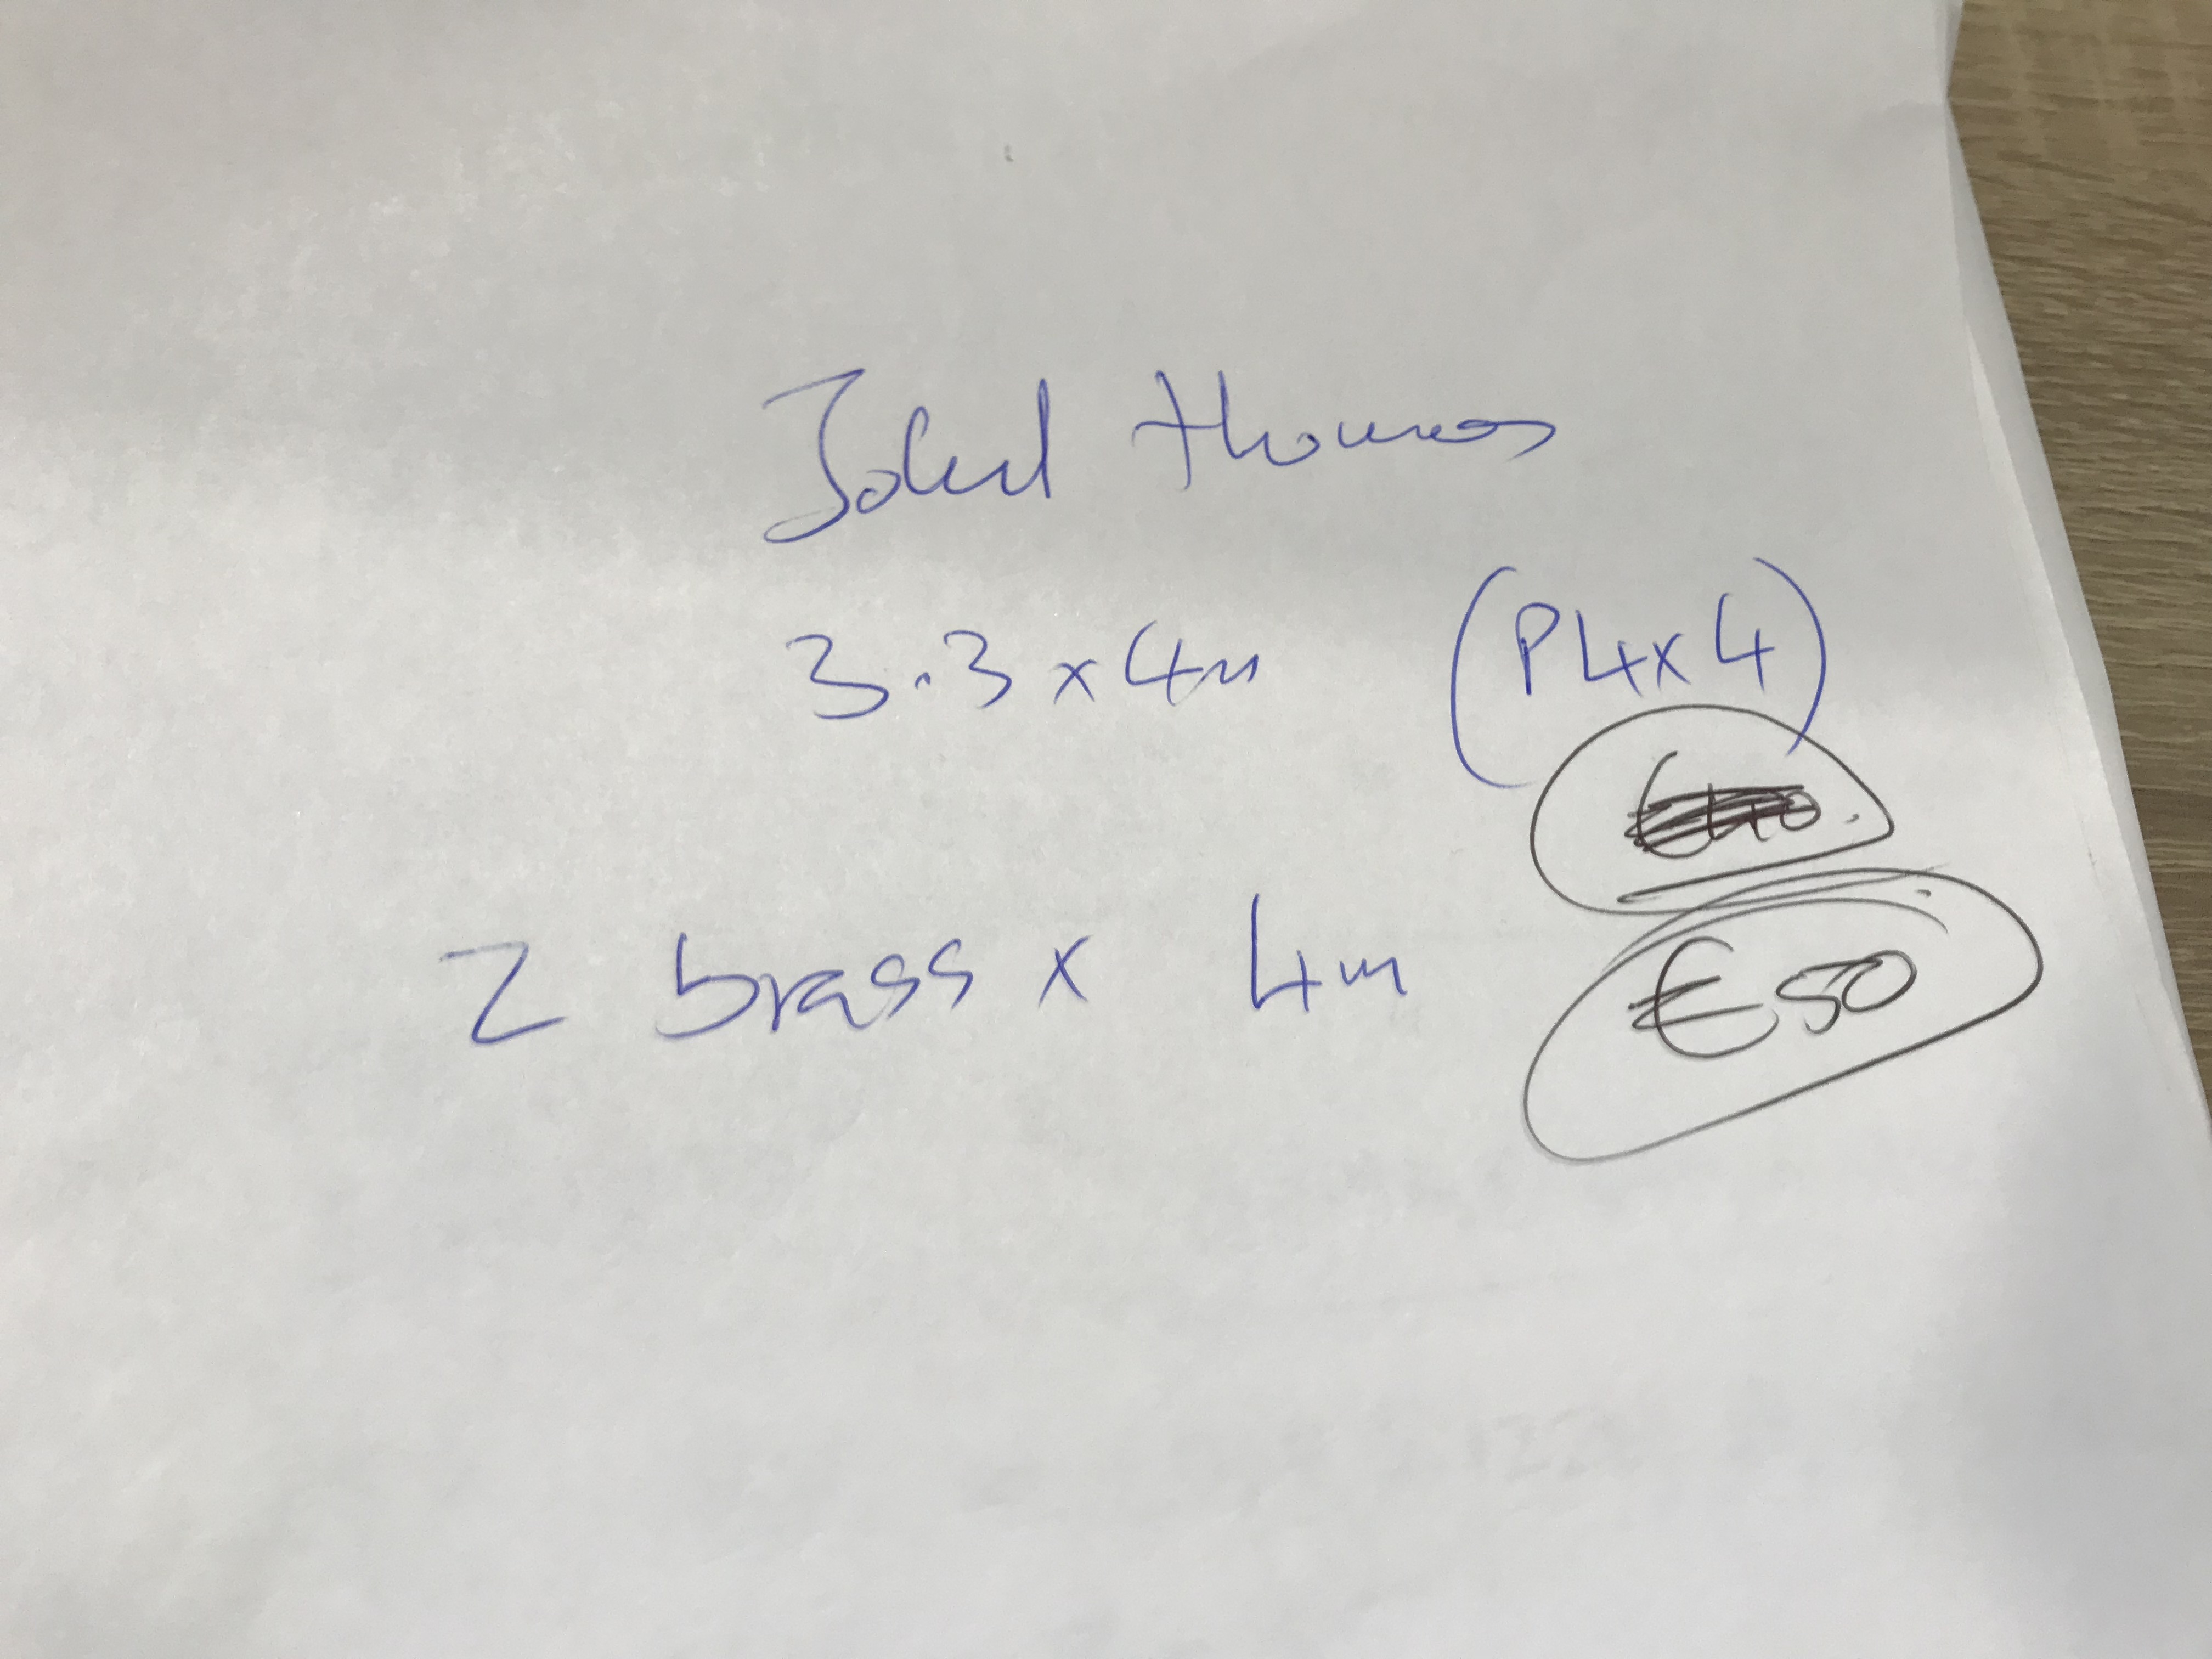 thomas
3.3 x 4m (P4x4)
2 brass x 4m
€50